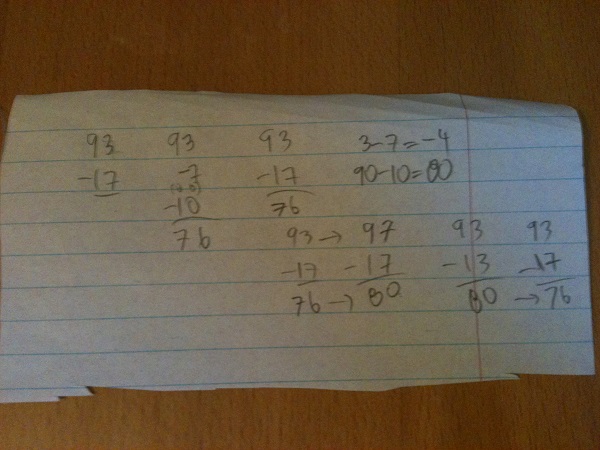 93 93 93 3-7=-4
-17 -7 -17 90-10=80
-10 76
76 93→ 97 93 93
-17 -17 -13 -17
76→ 80 80 →76